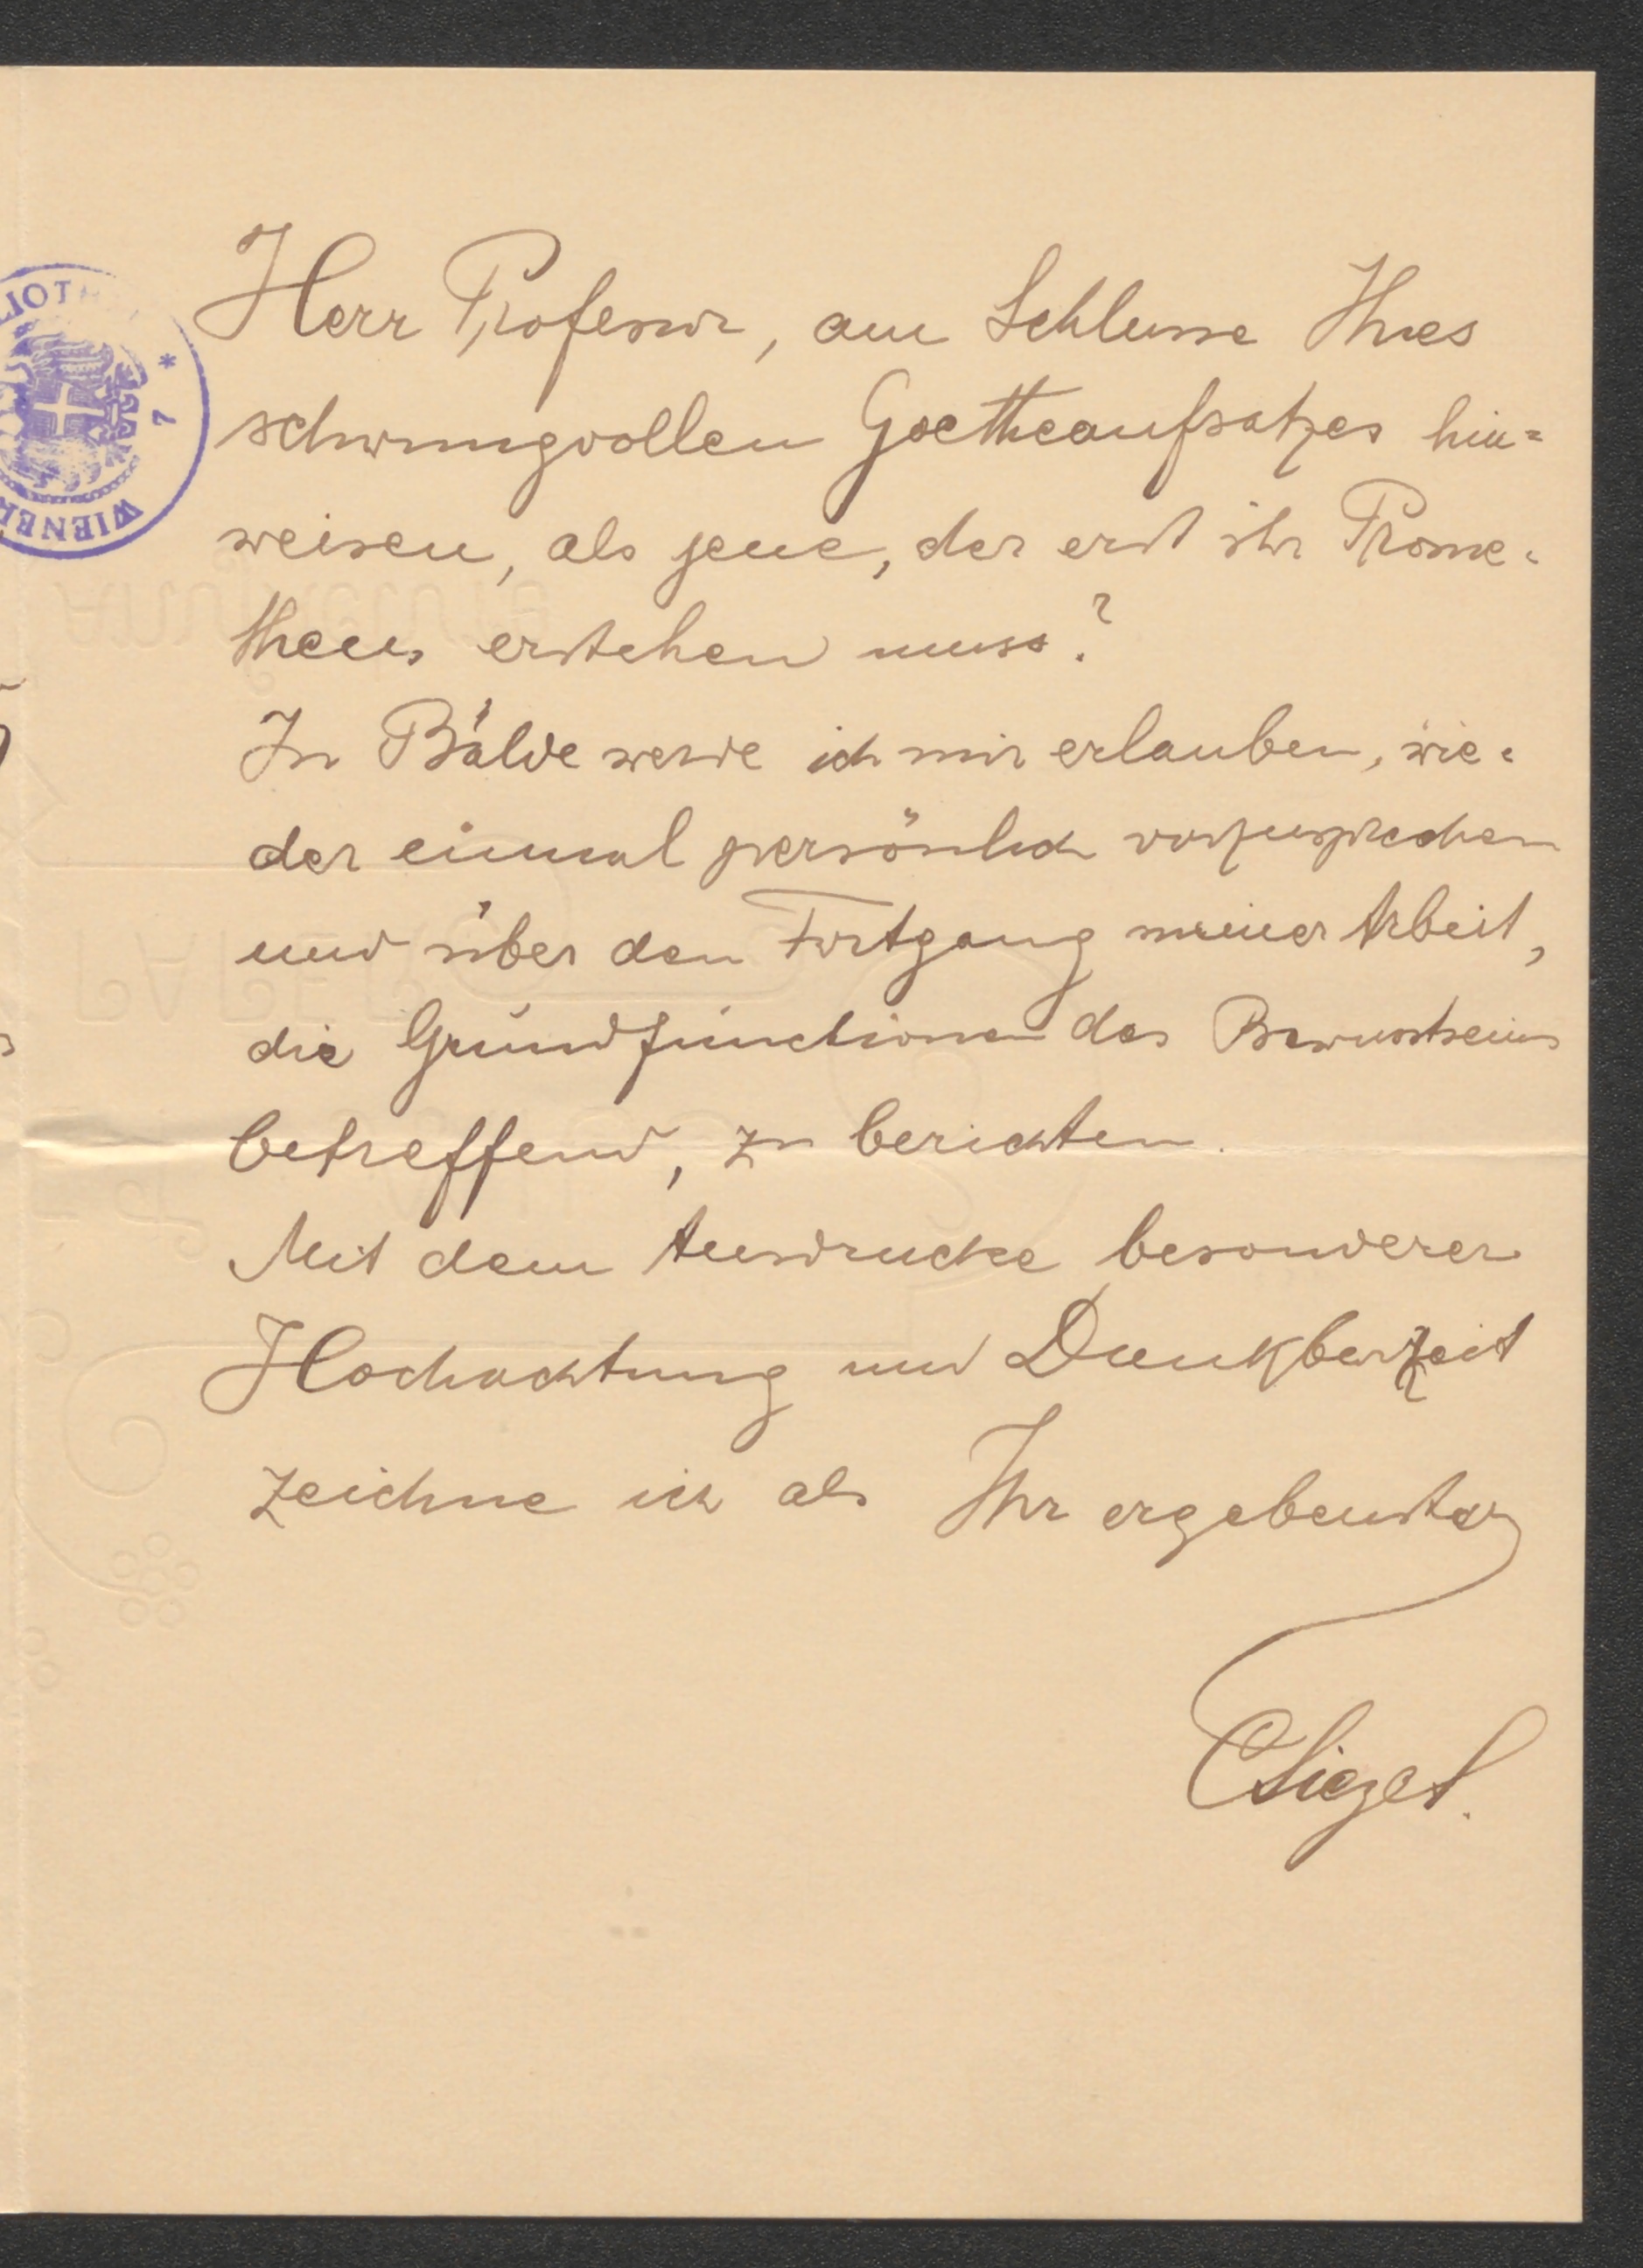 Herr Professor, am Schlusse Ihres
schwungvollen Goetheaufsatzes hin=
weisen, als jene, der erst ihr Prome=
theus erstehen muss?
In Bälde werde ich mir erlauben, wie=
der einmal persönlich vorzusprechen
und über den Fortgang meiner Arbeit,
die Grundfunctionen des Bewusstseins
betreffend, zu berichten.
Mit dem Ausdrucke besonderer
Hochachtung und Dankbarkeit
zeichne ich als Ihr ergebenster
CSiegel.
WIENER
7 *